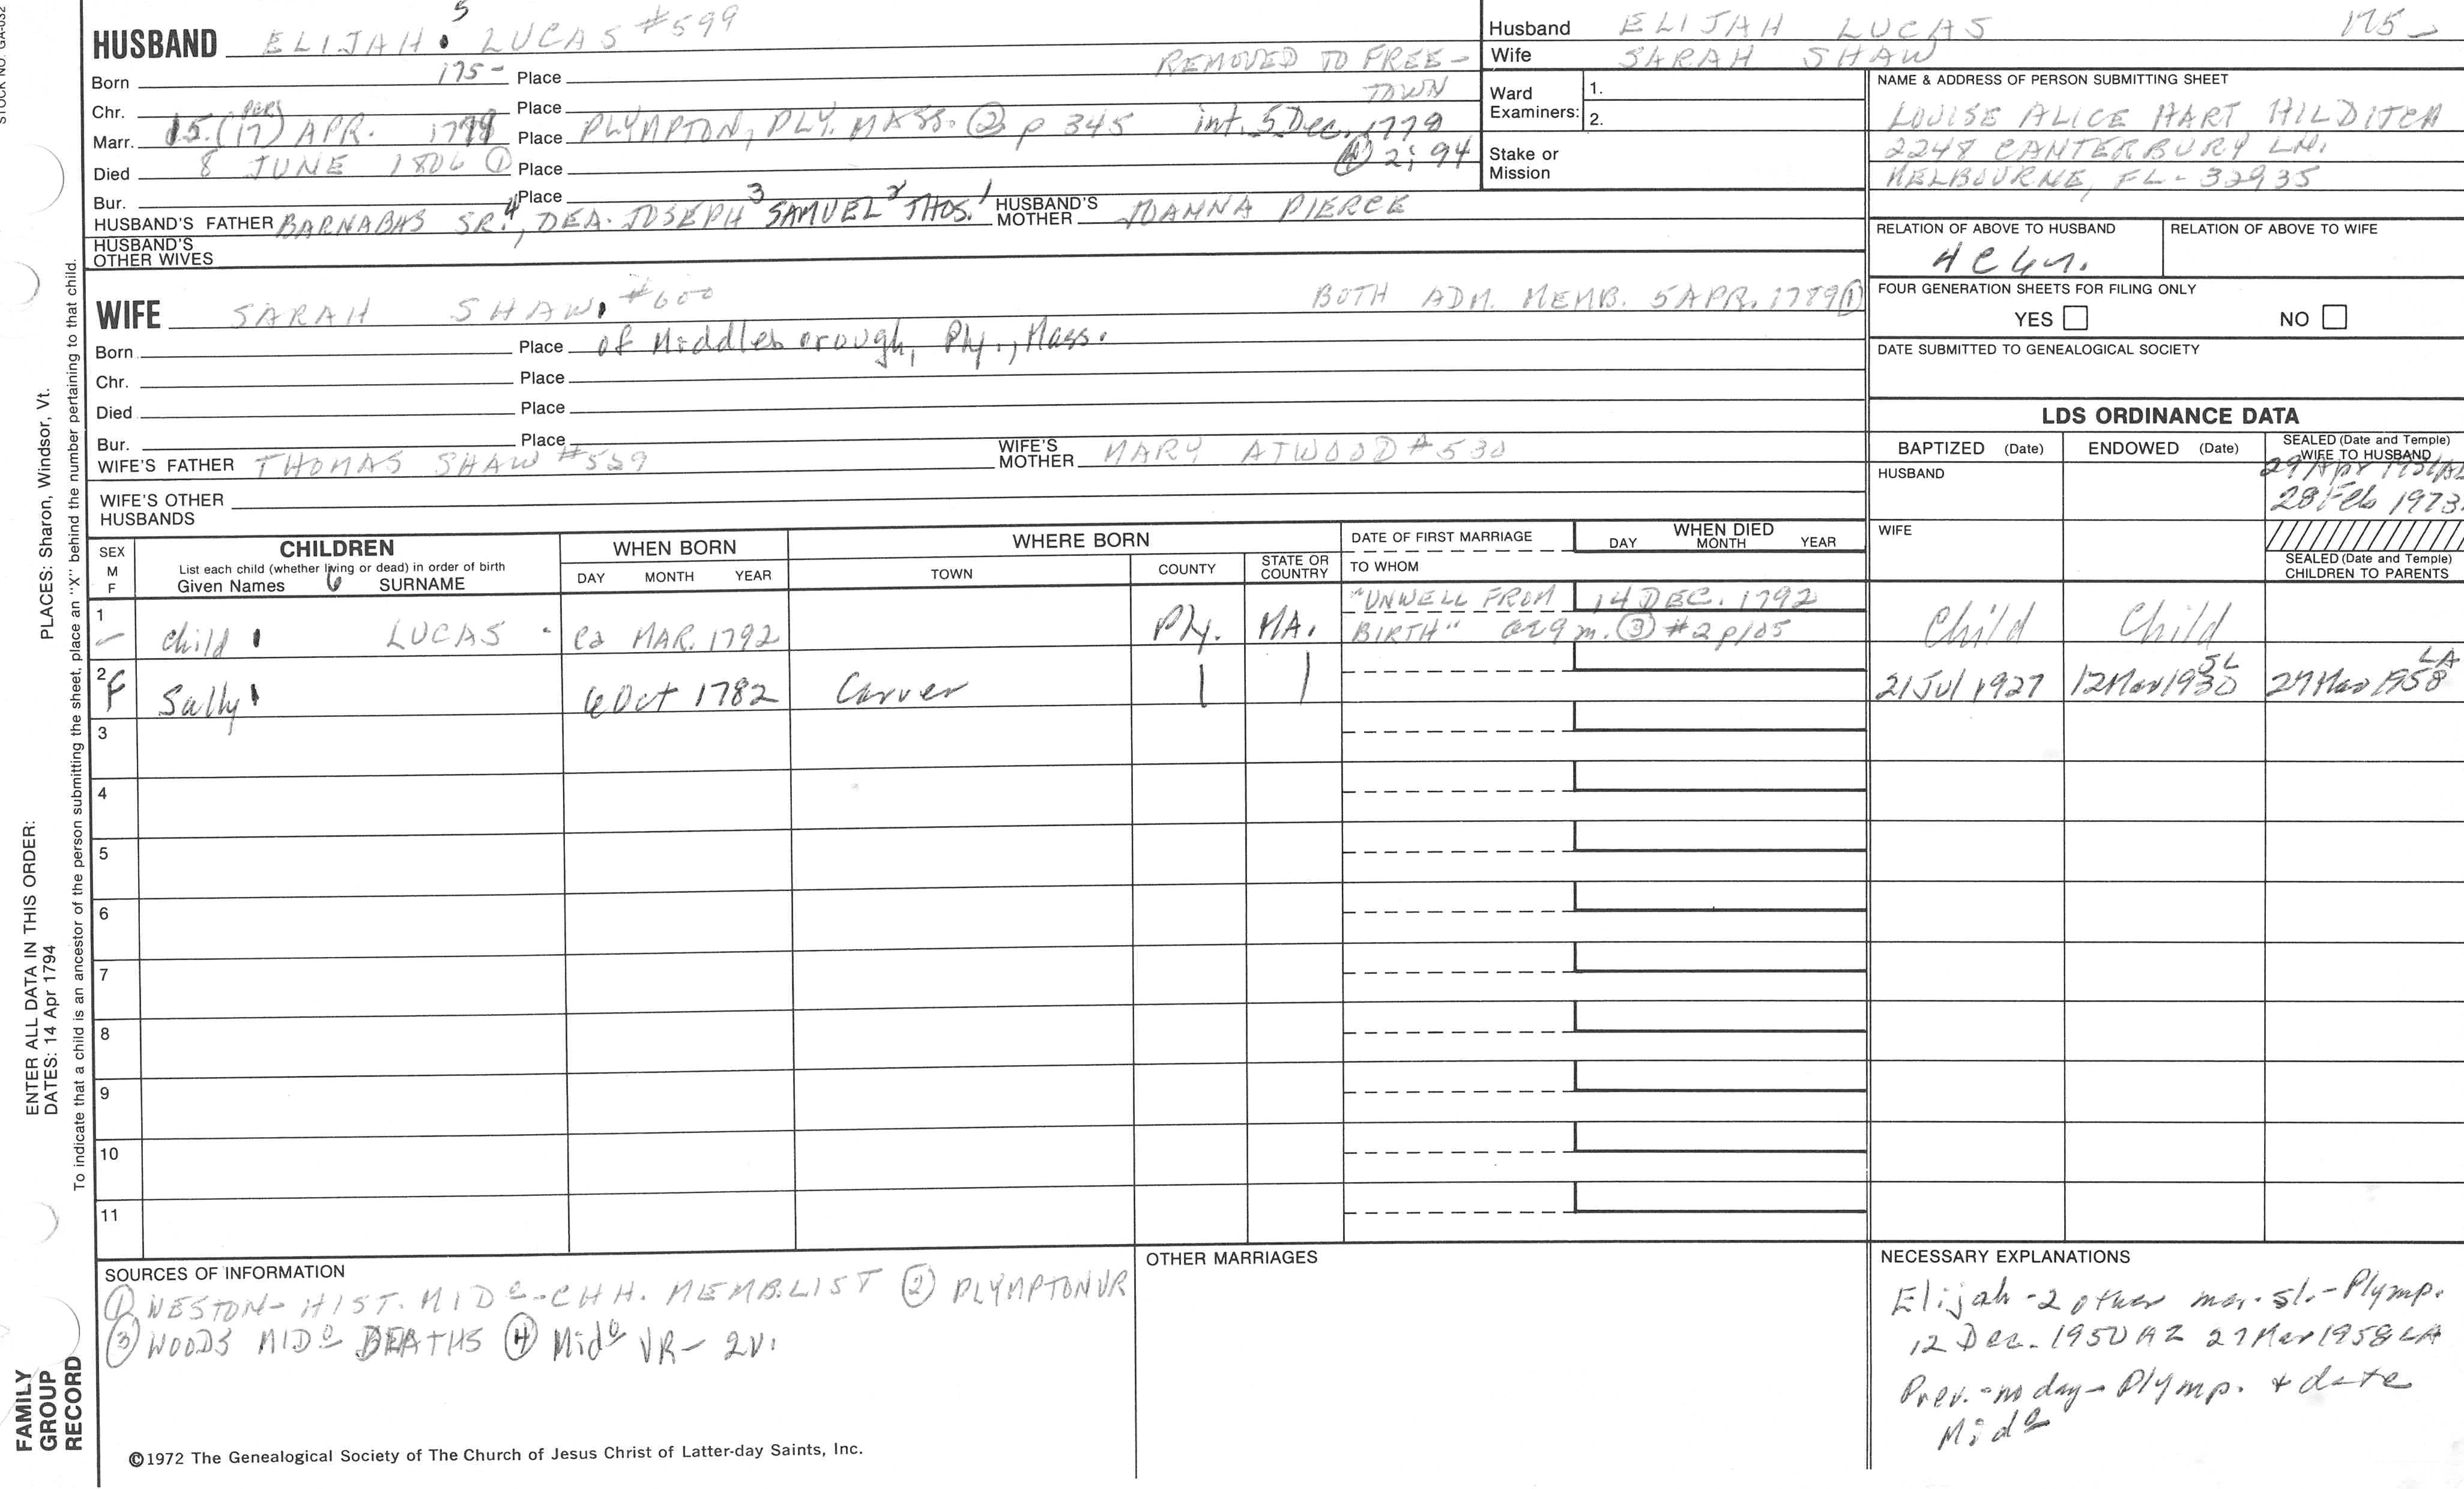 STOCK NO. GA-032
HUSBAND ELIJAH 5 LUCAS #599
Born 175- Place REMOVED TO FREE-
TOWN
Chr. Place
Marr. 15. (17) APR. Place PLYMPTON, PLY. MASS. ② p 345 int. 5 Dec. 1779
④ 2; 94
Died 8 JUNE 1806 ① Place
Bur. Place
HUSBAND'S FATHER BARNABAS SR. 4, DEA. JOSEPH 3 SAMUEL 2 THOS. 1 HUSBAND'S MOTHER JOANNA PIERCE
HUSBAND'S OTHER WIVES
Husband ELIJAH LUCAS 175-
Wife SARAH SHAW
Ward Examiners: 1.
2.
Stake or Mission
NAME & ADDRESS OF PERSON SUBMITTING SHEET
LOUISE ALICE HART HILDITCH
2248 CANTERBURY LN.
MELBOURNE, FL - 32935
RELATION OF ABOVE TO HUSBAND
RELATION OF ABOVE TO WIFE
FOUR GENERATION SHEETS FOR FILING ONLY
YES NO
DATE SUBMITTED TO GENEALOGICAL SOCIETY
WIFE SARAH SHAW #600 BOTH ADM. MEMB. 5 APR. 1789 ①
Born Place of Middleborough, Ply., Mass.
Chr. Place
Died Place
Bur. Place
WIFE'S FATHER THOMAS SHAW WIFE'S MOTHER MARY ATWOOD #530
WIFE'S OTHER HUSBANDS
LDS ORDINANCE DATA
BAPTIZED (Date) ENDOWED (Date) SEALED (Date and Temple) WIFE TO HUSBAND
HUSBAND 29 Apr
28 Feb 1973
WIFE
SEALED (Date and Temple) CHILDREN TO PARENTS
SEX M F
CHILDREN
List each child (whether living or dead) in order of birth
Given Names 6 SURNAME
WHEN BORN
DAY MONTH YEAR
WHERE BORN
TOWN COUNTY STATE OR COUNTRY
DATE OF FIRST MARRIAGE
TO WHOM
WHEN DIED
DAY MONTH YEAR
1 - child LUCAS ca MAR. 1792 Ply. MA. "UNWELL FROM BIRTH" 9 m. ③ #2 p 14 DEC. 1792 Child Child
2 F Sally 6 Oct 1782 Carver 21 Jul 1927 12 Mar 1930 SL 27 Mar 1958 LA
3
4
5
6
7
8
9
10
11
SOURCES OF INFORMATION
① WESTON - HIST. MIDº - CHH. MEMB. LIST ② PLYMPTON VR
③ WOODS MIDº DEATHS ④ Midº VR - 2v.
OTHER MARRIAGES
NECESSARY EXPLANATIONS
Elijah - 2 other mar. sl. - Plymp.
12 Dec. 1950 AZ 27 Mar 1958 LA
Prev. - no day - Plymp. + date
Midº
©1972 The Genealogical Society of The Church of Jesus Christ of Latter-day Saints, Inc.
PLACES: Sharon, Windsor, Vt.
ENTER ALL DATA IN THIS ORDER:
DATES: 14 Apr 1794
To indicate that a child is an ancestor of the person submitting the sheet, place an "X" behind the number pertaining to that child.
FAMILY
GROUP
RECORD